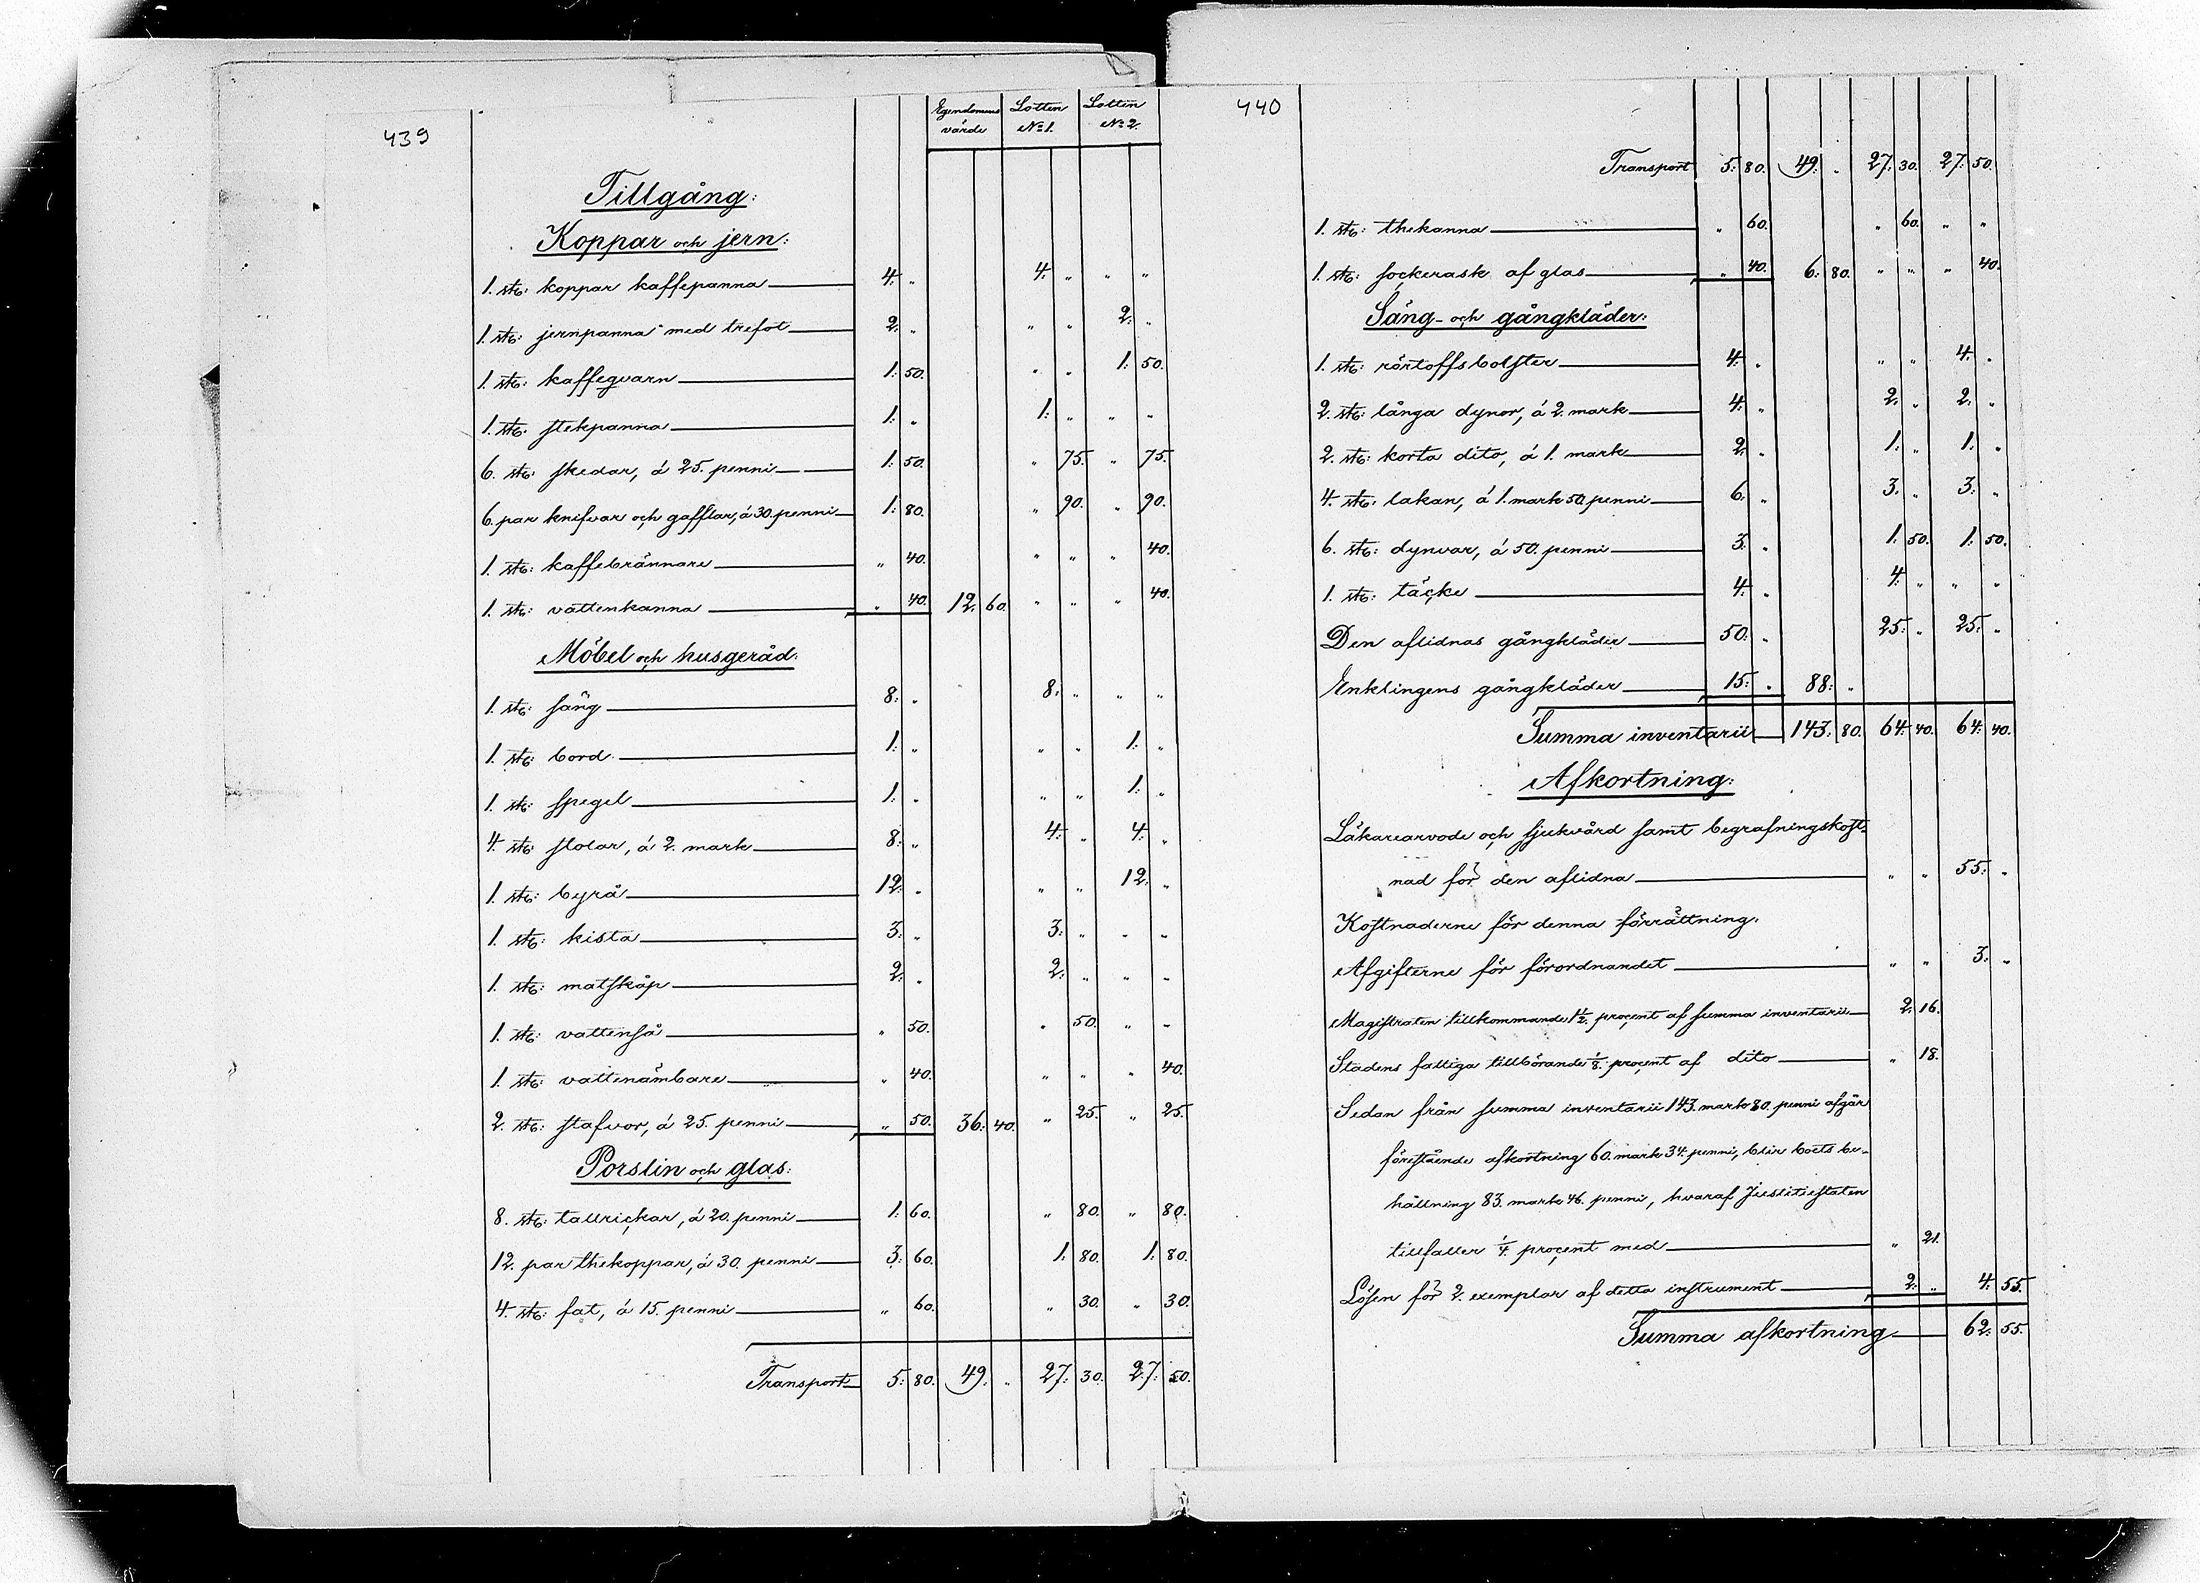 439
Egendomens värde Lotten No 1. Lotten No 2.
Tillgång:
Koppar och jern:
1. st: koppar kaffepanna 4: " 4: " " "
1. st: jernpanna med trefot 2: " " " 2: "
1. st: kaffeqvarn 1: 50. " " 1: 50.
1. st: stekpanna 1: " 1: " " "
6. st: skedar, á 25. penni 1: 50. " 75. " 75.
6. par knifvar och gafflar, á 30. penni 1: 80. " 90. " 90.
1. st: kaffebrännare " 40. " " " 40.
1. st: vattenkanna " 40. 12: 60. " " " 40.
Möbel och husgeråd:
1. st: säng 8: " 8: " " "
1. st: bord 1: " " " 1: "
1. st: spegel 1: " " " 1: "
4. st: stolar, á 2. mark 8: " 4: " 4: "
1. st: byrå 12: " " " 12: "
1. st: kista 3: " 3: " " "
1. st: matskåp 2: " 2: " " "
1. st: vattenså " 50. " 50. " "
1. st: vattenämbare " 40. " " " 40.
2. st: stafvor, á 25. penni " 50. 36: 40. " 25. " 25.
Porslin och glas:
8. st: tallrickar, á 20. penni 1: 60. " 80. " 80.
12. par thekoppar, á 30. penni 3: 60. 1: 80. 1: 80.
4. st: fat, á 15. penni " 60. " 30. " 30.
Transport 5: 80. 49: " 27: 30. 27: 50.
440
Transport 5: 80. 49: " 27: 30. 27: 50.
1. st: thekanna " 60. " 60. " "
1. st: sockerask af glas " 40. 6: 80. " " " 40.
Säng- och gångkläder:
1. st: rörtoffsbolster 4: " " " 4: "
2. st: långa dynor, á 2. mark 4: " 2: " 2: "
2. st: korta dito, á 1. mark 2: " 1: " 1: "
4. st: lakan, á 1. mark 50. penni 6: " 3: " 3: "
6. st: dynvar, á 50. penni 3: " 1: 50. 1: 50.
1. st: täcke 4: " 4: " " "
Den aflidnas gångkläder 50: " 25: " 25: "
Enklingens gångkläder 15: " 88: "
Summa inventarii 143: 80. 64: 40. 64: 40.
Afkortning:
Läkarearvode och sjukvård samt begrafningskost-
nad för den aflidna " " 55: "
Kostnaderne för denna förrättning:
Afgifterne för förordnandet " " 3: "
Magistraten tillkommande 1 1/2. procent af summa inventarii 2: 16.
Stadens fattiga tillbörande 1/8. procent af dito " 18.
Sedan från summa inventarii 143. mark 80. penni afgår
förestående afkortning 60. mark 34. penni, blir boets be-
hållning 83. mark 46. penni, hvaraf Justitiestaten
tillfaller 1/4. procent med " 21.
Lösen för 2. exemplar af detta instrument 2: " 4: 55.
Summa afkortning 62: 55.